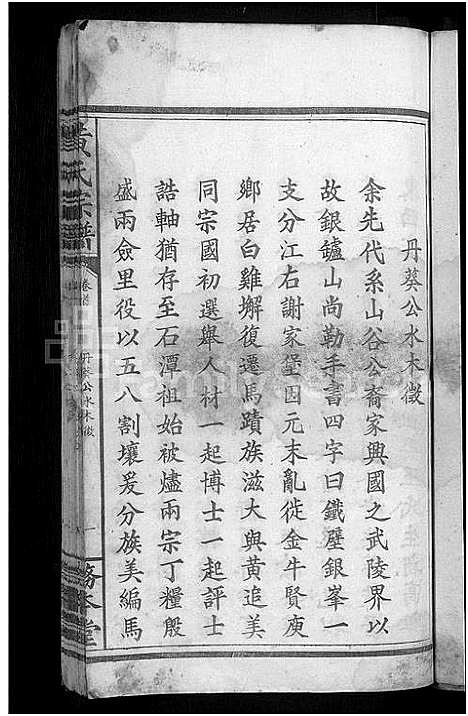 丹葵公水木徵
余先代系山谷公裔家興國之武陵界以
故銀鑪山尚勒手書四字曰鐵壁銀峯一
支分江右謝家堡因元末亂徙金牛賢庾
鄉居白雞塀復遷馬蹟族滋大與黃追美
同宗國初選舉人材一起博士一起評士
誥軸猶存至石潭祖始被燼兩宗丁糧殷
盛兩僉里役以五八割壤爰分族美編馬
黃氏宗譜
卷首
丹葵公水木徵
一
務本堂